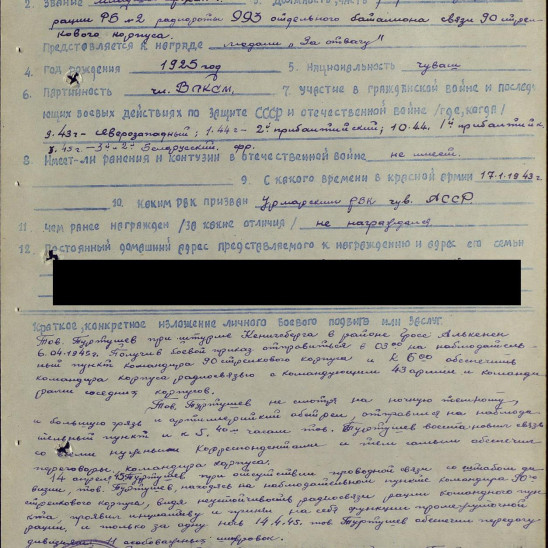 2. Звание младший 3. Должность, часть
рации РБ №2 радиороты 993 отдельного баталиона связи 90 стрел-
кового корпуса.
Представляется к награде медали "За отвагу"
4. год рождения 1925 год 5. Национальность чуваш
6. Партийность чл. ВЛКСМ, 7. участие в гражданской войне и последу-
ющих боевых действиях по защите СССР и отечественной войне /где, когда/
9.43г- северозападный; 1.44г- 2й прибалтийский; 10.44. 1й прибалтийск.
45г- 3й-2й Белорусский. фр.
8. Имеет-ли ранения и контузии в отечественной войне не имеет.
9. С какого времени в красной армии 17.1.1943г.
10. каким рвк призван Урмарским рвк чув. АССР
11. чем ранее награжден /за какие отличия/ не награждался
12. Постоянный домашний адрес представляемого к награждению и адрес его семьи
Краткое, конкретное изложение личного боевого подвига или заслуг.
Тов. Туртушев при штурме Кенигсберга в районе Гросс
6.04.1945г. Получив боевой приказ отправиться в 03 00 на наблюдатель-
ный пункт командира 90 стрелкового корпуса и к 6 00 обеспечить
командира корпуса радиосвязью с командующим 43 армии и команди
рами соседних корпусов.
Тов. Туртушев не смотря на ночную темноту,
и большую грязь и артиллерийский обстрел, отправился на наблюда
тельный пункт и к 5. 40м часам тов. Туртушев восстановил связь
со нужными корреспондентами и тем самым обеспечил
переговоры командира корпуса.
14 апреля 45 Туртушев при отсутствии проводной связи со штабом ди
визии, тов. Туртушев находясь на наблюдательном пункте командира 90го
стрелкового корпуса, видя неустойчивость радиосвязи рации командного пун
кта проявил инициативу и принял на себя функции промежуточной
рации, и только за одну ночь 14.4.45. тов Туртушев обеспечил передачу
дивизиям 11 шифровок.